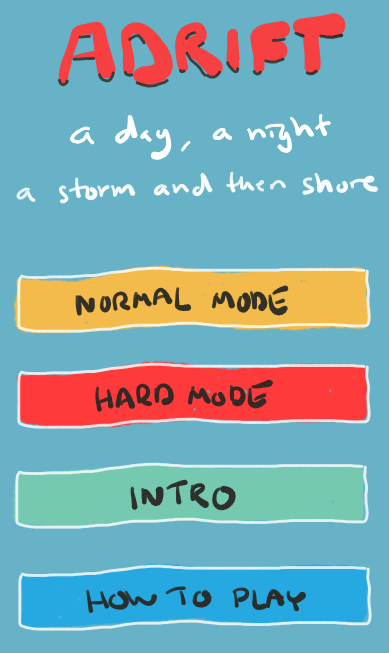 ADRIFT
a day, a night
a storm and then shore
NORMAL MODE
HARD MODE
INTRO
HOW TO PLAY